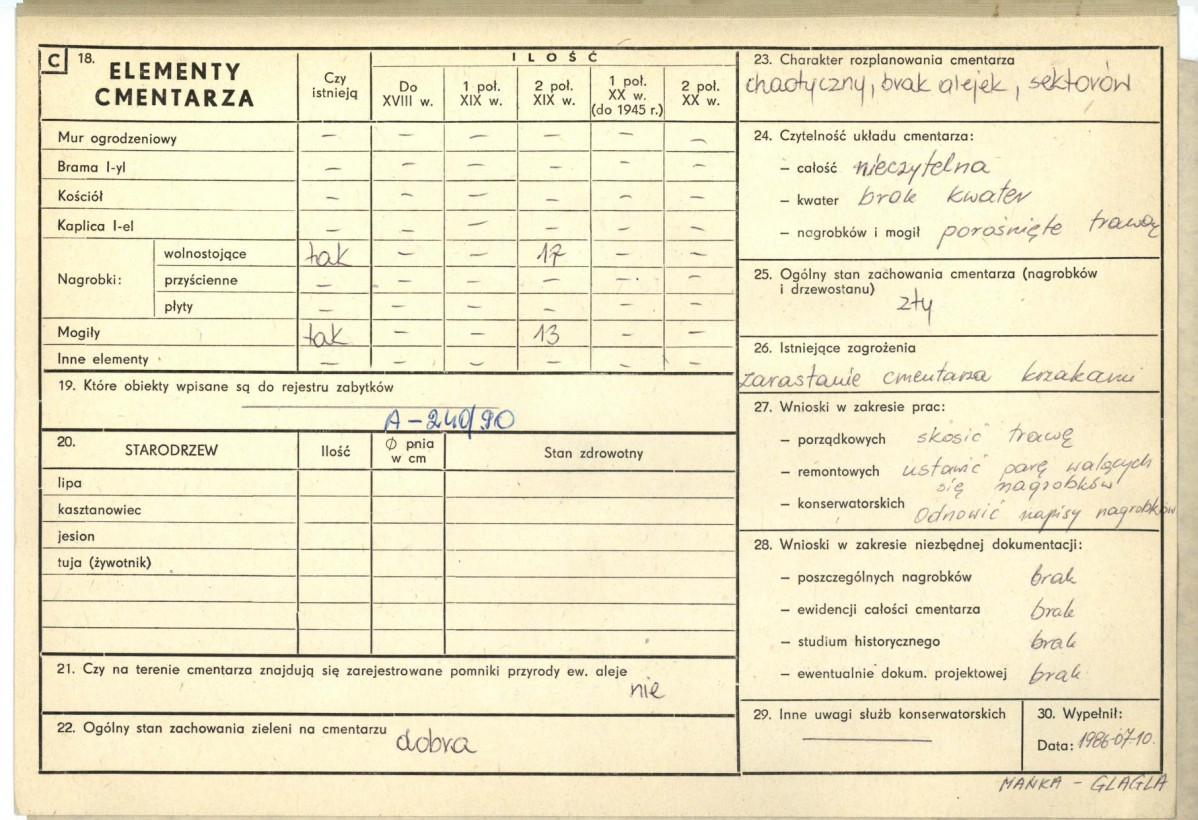 C 18. ELEMENTY CMENTARZA
Czy istnieją
ILOŚĆ
Do XVIII w.
1 poł. XIX w.
2 poł. XIX w.
1 poł. XX w. (do 1945 r.)
2 poł. XX w.
Mur ogrodzeniowy – – – – – –
Brama I-yl – – – – – –
Kościół – – – – – –
Kaplica I-el – – – – – –
Nagrobki:
wolnostojące tak – – 17 – –
przyścienne – – – – – –
płyty – – – – – –
Mogiły tak – – 13 – –
Inne elementy – – – – – –
19. Które obiekty wpisane są do rejestru zabytków
A – 240/90
20. STARODRZEW
Ilość
Ø pnia w cm
Stan zdrowotny
lipa
kasztanowiec
jesion
tuja (żywotnik)
21. Czy na terenie cmentarza znajdują się zarejestrowane pomniki przyrody ew. aleje
nie
22. Ogólny stan zachowania zieleni na cmentarzu dobra
23. Charakter rozplanowania cmentarza
chaotyczny, brak alejek, sektorów
24. Czytelność układu cmentarza:
– całość nieczytelna
– kwater brak kwater
– nagrobków i mogił porośnięte trawą
25. Ogólny stan zachowania cmentarza (nagrobków
i drzewostanu) zły
26. Istniejące zagrożenia
zarastanie cmentarza krzakami
27. Wnioski w zakresie prac:
– porządkowych skosić trawę
– remontowych ustawić parę walących
się nagrobków
– konserwatorskich Odnowić napisy nagrobków
28. Wnioski w zakresie niezbędnej dokumentacji:
– poszczególnych nagrobków brak
– ewidencji całości cmentarza brak
– studium historycznego brak
– ewentualnie dokum. projektowej brak
29. Inne uwagi służb konserwatorskich
30. Wypełnił:
Data: 1986-07-10.
MAŃKA – GLAGLA